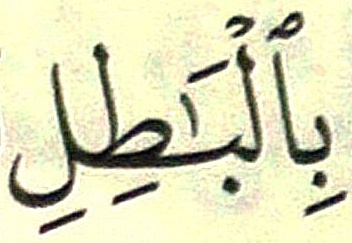 بِٱلْبَـٰطِلِ